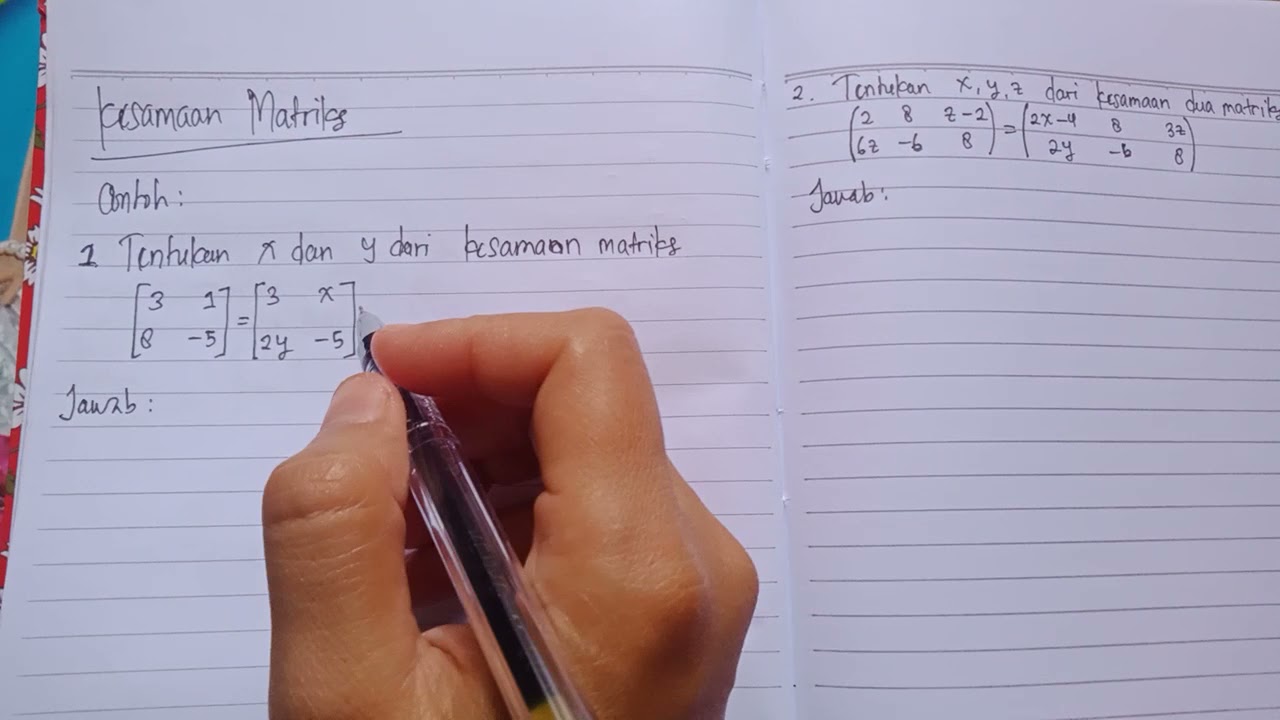 Kesamaan Matriks
Contoh:
1 Tentukan x dan y dari kesamaan matriks
[3 1] = [3 x]
[8 -5] [2y -5]
Jawab:
2. Tentukan x, y, z dari kesamaan dua matriks
(2 8 z-2) = (2x-4 8 3z)
(6z -6 8) (2y -6 8)
Jawab: